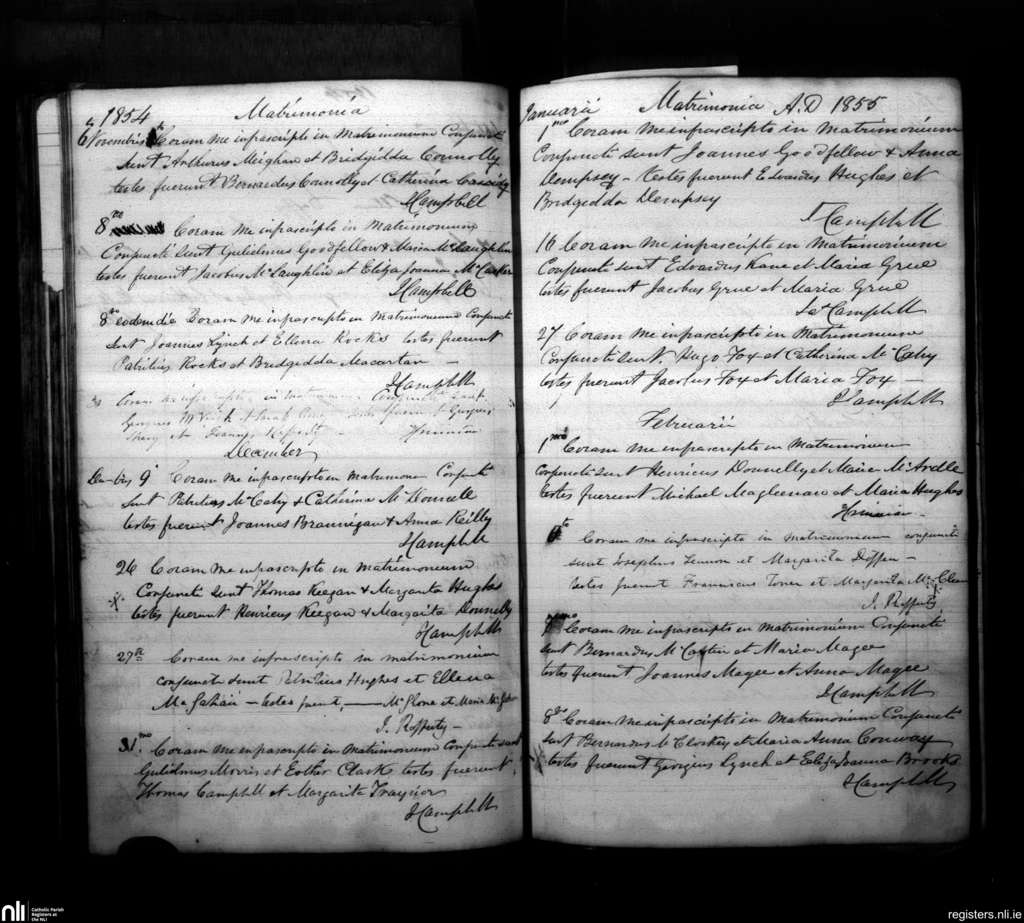 1854 Matrimonia
6 Novembris Coram me infrascripto in Matrimonium Conjuncti
Sunt Arthurus Meighan et Bridgidda Connolly
testes fuerunt Bernardus Connolly et Catherina Cassidy
JCampbell
8 Coram me infrascripto in Matrimonium
Conjuncti Sunt Gulielmus Goodfellow & Maria McLaughlin
testes fuerunt Jacobus McLaughlin et Eliza Joanna
JCampbell
8 eodem die Coram me infrascripto in Matrimonium Conjuncti
Sunt Joannes Lynch et Ellena Rocks testes fuerunt
Patritius Rocks et Bridgidda Macartan
JCampbell
Coram me infrascripto in matrimonium conjuncti sunt
et
December
9 Coram me infrascripto in matrimonium Conjuncti
Sunt Patritius McCahy & Catherina
testes fuerunt Joannes Brannigan & Anna Reilly
JCampbell
26 Coram me infrascripto in matrimonium
Conjuncti Sunt Thomas Keegan & Margarita Hughes
testes fuerunt Henricus Keegan & Margarita Donnelly
JCampbell
27 Coram me infrascripto in matrimonium
conjuncti sunt Patritius Hughes et Ellena
testes fuerunt et Maria
31 Coram me infrascripto in Matrimonium Conjuncti sunt
Gulielmus Morris et Esther Clarke testes fuerunt
Thomas Campbell et Margarita Traynor
JCampbell
Januarii Matrimonia A.D 1855
1mo Coram me infrascripto in Matrimonium
Conjuncti sunt Joannes Goodfellow & Anna
Dempsey - testes fuerunt Edvardus Hughes et
Bridgedda Dempsey
JCampbell
16 Coram me infrascripto in Matrimonium
Conjuncti sunt Edvardus Kane et Maria Grue
testes fuerunt Jacobus Grue et Maria Grue
Campbell
27 Coram me infrascripto in Matrimonium
Conjuncti sunt Hugo Fox et Catherina McCahy
testes fuerunt Jacobus Fox et Maria Fox
JCampbell
Februarii
1mo Coram me infrascripto in Matrimonium
Conjuncti sunt Henricus Donnelly et Maria McArdle
testes fuerunt Michael Magleenan et Maria Hughes
Coram me infrascripto in matrimonium conjuncti
sunt Josephus Lennon et Margarita
testes fuerunt Franciscus Toner et Margarita
Coram me infrascripto in Matrimonium Conjuncti
Sunt Bernardus et Maria Magee
testes fuerunt Joannes Magee et Anna Magee
JCampbell
8 Coram me infrascripto in Matrimonium Conjuncti
Sunt Bernardus McCloskey et Maria Anna Conway
testes fuerunt Georgius Lynch et Eliza Joanna Brooks
JCampbell
nli Catholic Parish
Registers at
the NLI
registers.nli.ie